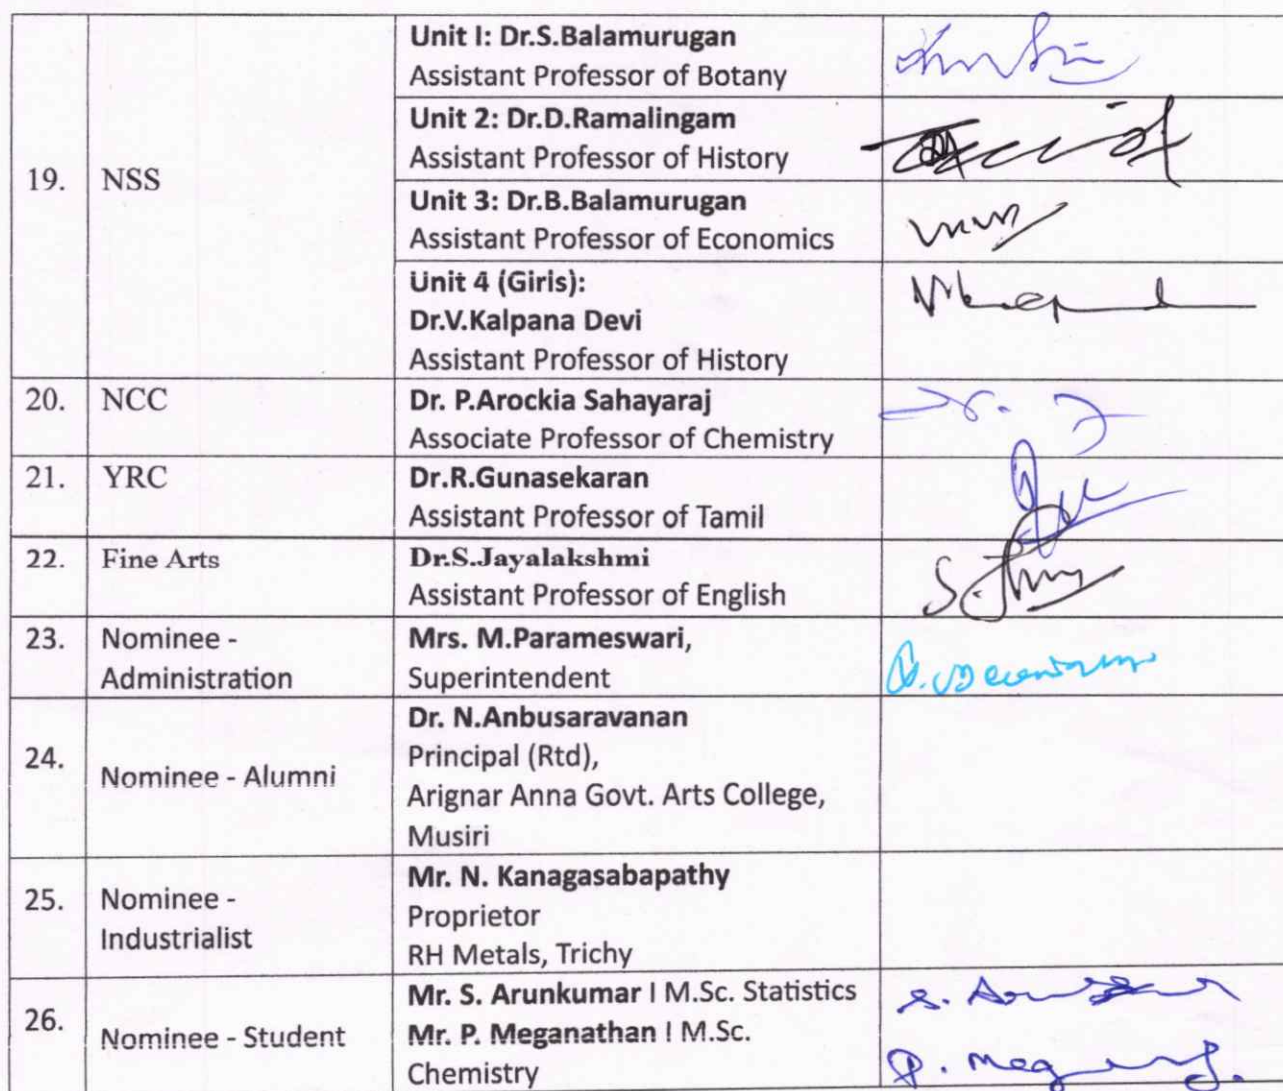 19.
NSS
Unit I: Dr.S.Balamurugan
Assistant Professor of Botany
Unit 2: Dr.D.Ramalingam
Assistant Professor of History
Unit 3: Dr.B.Balamurugan
Assistant Professor of Economics
Unit 4 (Giris):
Dr.V.Kalpana Devi
Assistant Professor of History
20.
NCC
Dr. P.Arockia Sahayaraj
Associate Professor of Chemistry
21.
YRC
Dr.R.Gunasekaran
Assistant Professor of Tamil
22.
Fine Arts
Dr.S.Jayalakshmi
Assistant Professor of English
23.
Nominee -
Administration
Mrs. M.Parameswari,
Superintendent
24.
Nominee - Alumni
Dr. N.Anbusaravanan
Principal (Rtd),
Arignar Anna Govt. Arts College,
Musiri
25.
Nominee -
Industrialist
Mr. N. Kanagasabapathy
Proprietor
RH Metals, Trichy
26.
Nominee - Student
Mr. S. Arunkumar I M.Sc. Statistics
Mr. P. Meganathan I M.Sc.
Chemistry